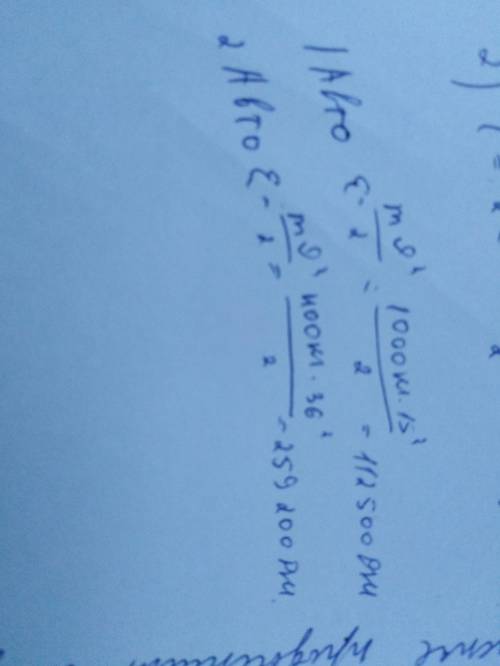 2)
1 Авто E = mυ² / 2 = 1000 кг · 15² / 2 = 112 500 Дж
2 Авто E = mυ² / 2 = 400 кг · 36² / 2 = 259 200 Дж.